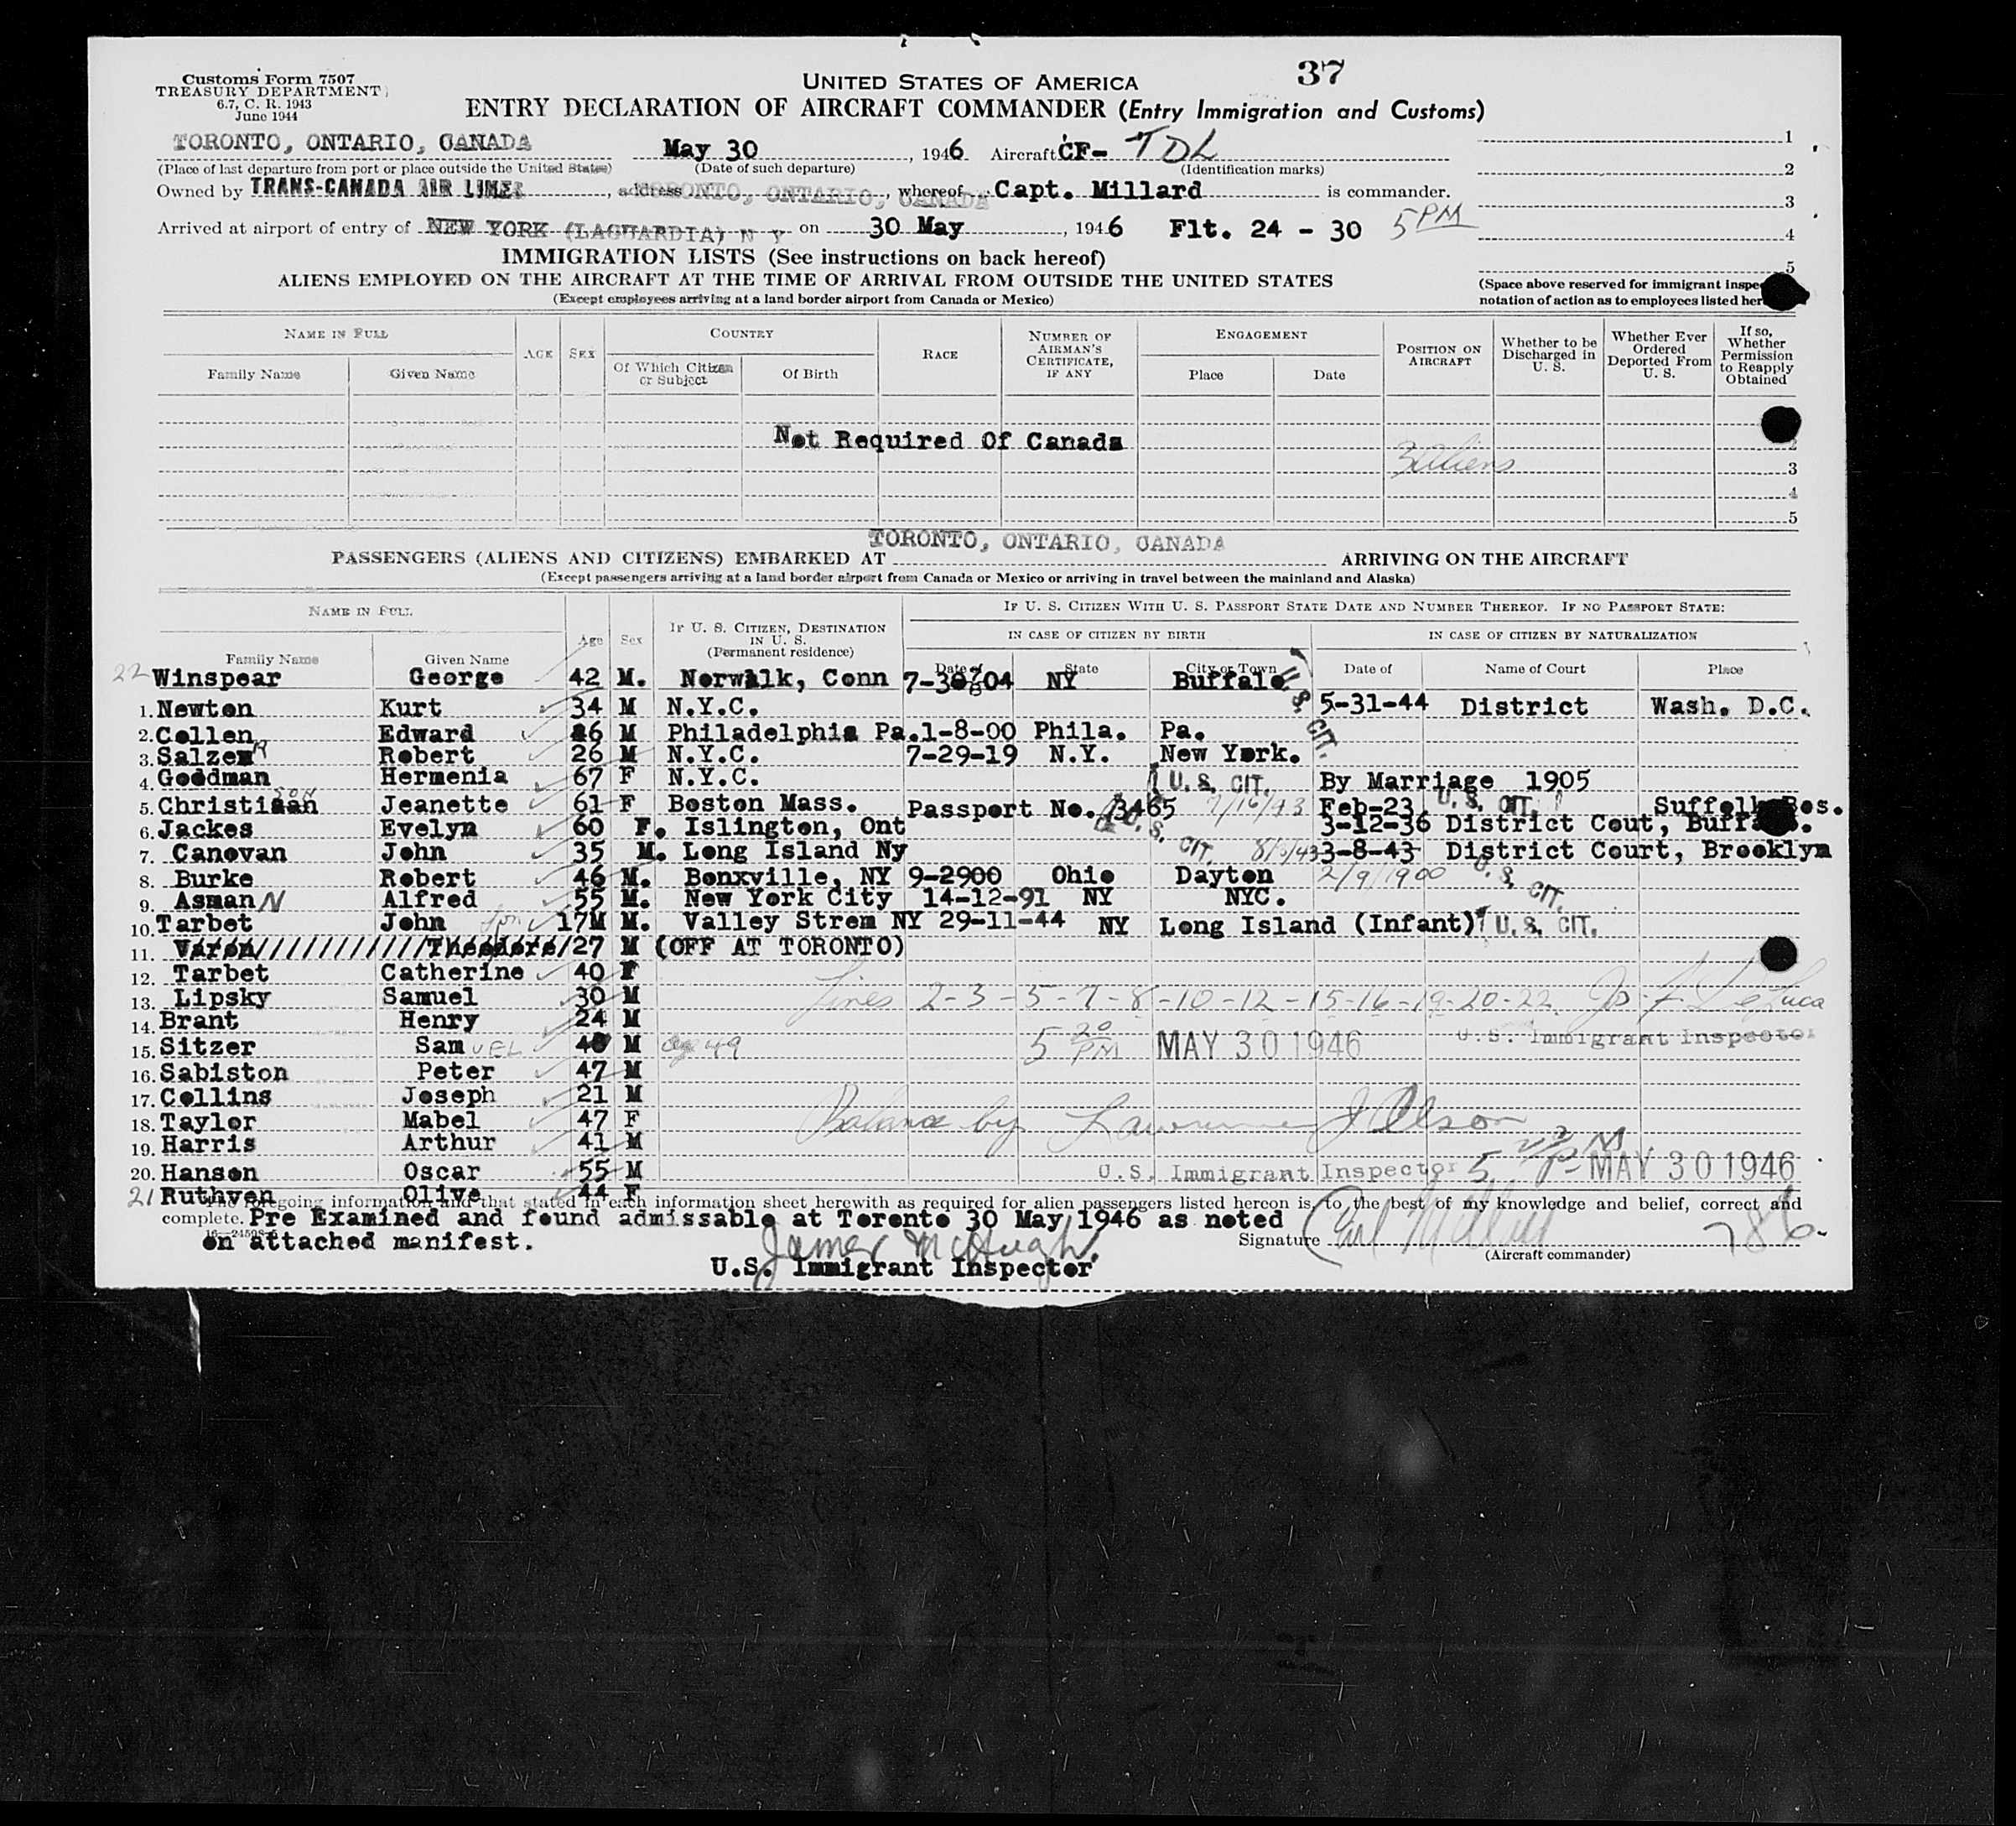 37
Customs Form 7507
TREASURY DEPARTMENT
6.7, C. R. 1943
June 1944
UNITED STATES OF AMERICA
ENTRY DECLARATION OF AIRCRAFT COMMANDER (Entry Immigration and Customs)
TORONTO, ONTARIO, CANADA May 30, 1946 Aircraft CF- TDL
(Place of last departure from port or place outside the United States) (Date of such departure) (Identification marks)
Owned by TRANS-CANADA AIR LINES, address TORONTO, ONTARIO, CANADA, whereof Capt. Millard is commander.
Arrived at airport of entry of NEW YORK (LAGUARDIA) N Y on 30 May, 1946 Flt. 24 - 30 5 PM
1
2
3
4
5
IMMIGRATION LISTS (See instructions on back hereof)
ALIENS EMPLOYED ON THE AIRCRAFT AT THE TIME OF ARRIVAL FROM OUTSIDE THE UNITED STATES
(Except employees arriving at a land border airport from Canada or Mexico)
(Space above reserved for immigrant
notation of action as to employees listed
NAME IN FULL COUNTRY ENGAGEMENT
Family Name Given Name AGE SEX Of Which Citizen or Subject Of Birth RACE NUMBER OF AIRMAN'S CERTIFICATE, IF ANY Place Date POSITION ON AIRCRAFT Whether to be Discharged in U. S. Whether Ever Ordered Deported From U. S. If so, Whether Permission to Reapply Obtained
Not Required Of Canada 2
3 aliens 3
4
5
TORONTO, ONTARIO, CANADA
PASSENGERS (ALIENS AND CITIZENS) EMBARKED AT ARRIVING ON THE AIRCRAFT
(Except passengers arriving at a land border airport from Canada or Mexico or arriving in travel between the mainland and Alaska)
NAME IN FULL Age Sex IF U. S. CITIZEN, DESTINATION IN U. S. (Permanent residence) IF U. S. CITIZEN WITH U. S. PASSPORT STATE DATE AND NUMBER THEREOF. IF NO PASSPORT STATE:
IN CASE OF CITIZEN BY BIRTH IN CASE OF CITIZEN BY NATURALIZATION
Family Name Given Name Date of State City or Town Date of Name of Court Place
22 Winspear George 42 M. Norwalk, Conn 04 NY Buffalo U. S. CIT.
1. Newton Kurt 34 M N.Y.C. 5-31-44 District Wash. D.C.
2. Collen Edward 46 M Philadelphia Pa. 1-8-00 Phila. Pa.
3. Salzer Robert 26 M N.Y.C. 7-29-19 N.Y. New York.
4. Goodman Hermenia 67 F N.Y.C. U. S. CIT. By Marriage 1905
5. Christiaan son Jeanette 61 F Boston Mass. Passport No. 3465 7/16/43 Feb-23 U. S. CIT. Suffolk Bos.
6. Jackes Evelyn 60 F. Islington, Ont U. S. CIT. 3-12-36 District Cout,
7. Canovan John 35 M. Long Island Ny 3-8-43 District Court, Brooklyn
8. Burke Robert 46 M. Bonxville, NY 9-2900 Ohio Dayton 2/9/1900 U. S. CIT.
9. Asman N Alfred 55 M. New York City 14-12-91 NY NYC.
10. Tarbet John 17M M. Valley Strem NY 29-11-44 NY Long Island (Infant) U. S. CIT.
11. Varon Theodore 27 M (OFF AT TORONTO)
12. Tarbet Catherine 40 F
13. Lipsky Samuel 30 M Lines 2-3-5-7-8-10-12-15-16-19-20-22
14. Brant Henry 24 M U.S. Immigrant Inspector
15. Sitzer Sam UEL M age 49 5 20 PM MAY 30 1946
16. Sabiston Peter 47 M
17. Collins Joseph 21 M
18. Taylor Mabel 47 F Balance by Lawrence J Olson
19. Harris Arthur 41 M
20. Hanson Oscar 55 M U.S. Immigrant Inspector MAY 30 1946
21 Ruthven Olive 44 F
The foregoing information and that stated in each information sheet herewith as required for alien passengers listed hereon is, to the best of my knowledge and belief, correct and
complete. Pre Examined and found admissable at Toronto 30 May 1946 as noted
on attached manifest.
James McHugh
U.S. Immigrant Inspector
Signature Earl Millard
(Aircraft commander)
786